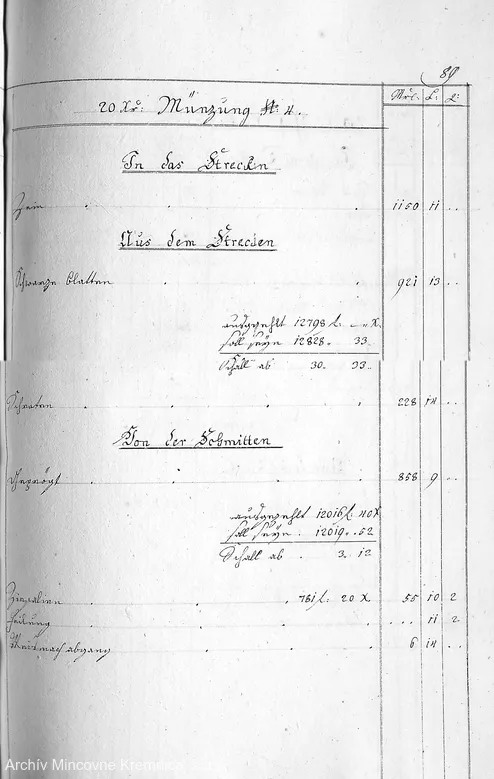 89
20 Xr: Münzung N: 4. Mrk. L: Q:
In das Strecken
Zein 1150 11 . .
Aus dem Strecken
Schwarze Blatten 921 13 . .
ausgezehlt 12798 f. — „ X.
soll seyn 12828. 33.
Schall ab 30. 33.
Schroten 228 14 . .
Von der Schmitten
Geprägt 858 9 . .
ausgezehlt 12016 f. 40 X
soll seyn . 12019. . 52
Schall ab . 3. 12
Zisalien . 781 f. 20 X 55 10 2
. . 11 2
abgang 6 14 . .
Archív Mincovne Kremnica